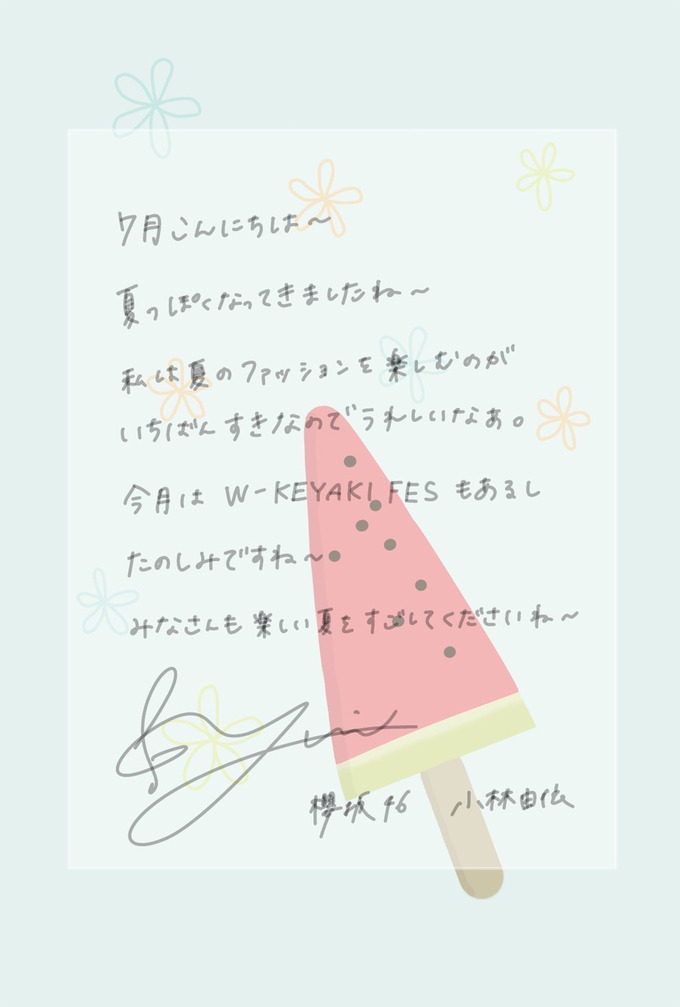 7月こんにちは〜
夏っぽくなってきましたね〜
私は夏のファッションを楽しむのが
いちばんすきなのでうれしいなぁ。
今月は W-KEYAKI FES もあるし
たのしみですね〜
みなさんも楽しい夏をすごしてくださいね〜
Yui
櫻坂46 小林由依